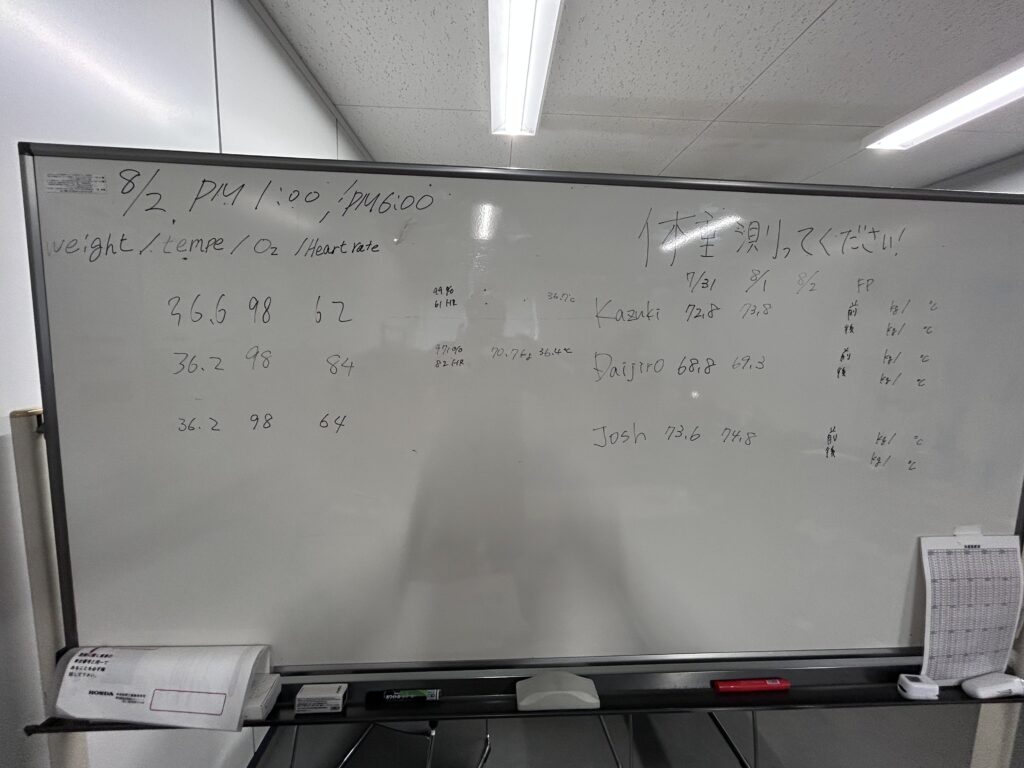 8/2, PM 1:00, PM6:00
weight / tempe / O₂ / Heart rate
体重 測ってください!
7/31 8/1 8/2 FP
36.6 98 62
99%
61HR
36.7℃
Kazuki 72.8 73.8
前 kg/ ℃
後 kg/ ℃
36.2 98 84
97%
82HR
70.7kg 36.4℃
Daijiro 68.8 69.3
前 kg/ ℃
後 kg/ ℃
36.2 98 64
Josh 73.6 74.8
前 kg/ ℃
後 kg/ ℃
HONDA